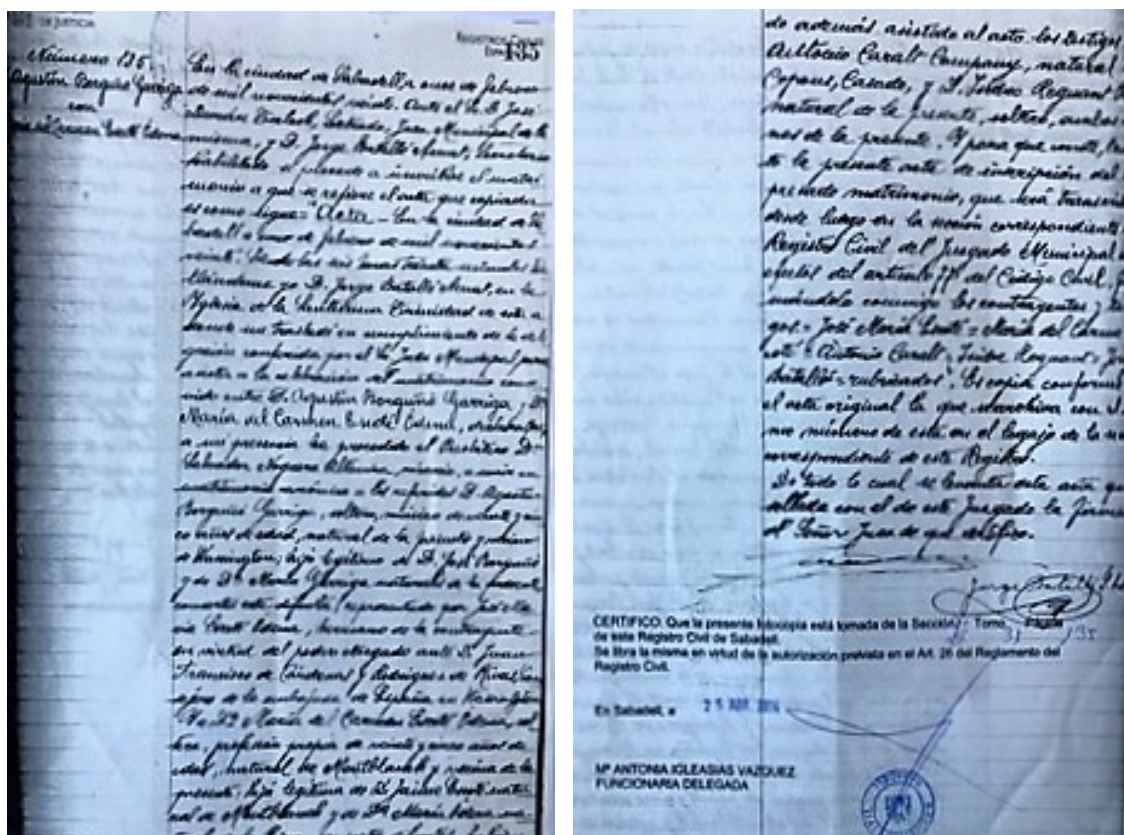 DE JUSTICIA
REGISTROS CIVILES
135
Número 135
Agustín Borguñó Garriga
con
María del Carmen
En la ciudad de Sabadell, a once de febrero
de mil novecientos veinte. Ante el Sr. D. José
Juez Municipal de la
misma, y D. Jorge Batallé Secretario
se procede a inscribir el matri-
monio a que se refiere el acta que copiada
es como sigue: "Acta - En la ciudad de Sa-
badell a once de febrero de mil novecientos
veinte. Siendo las seis horas treinta minutos
yo D. Jorge Batallé en la
Iglesia de la Santísima Trinidad de esta a
donde me trasladé en cumplimiento de la dele-
gación conferida por el Sr. Juez Municipal para
asistir a la celebración del matrimonio conve-
nido entre D. Agustín Borguñó Garriga y Dª
María del Carmen
a mi presencia ha procedido el Presbítero Dr.
Salvador Noguera a unir en
matrimonio canónico a los referidos D. Agustín
Borguñó Garriga, soltero, músico de veinte y cin-
co años de edad, natural de la presente y vecino
de Washington; hijo legítimo de D. José Borguñó
y de Dª María Garriga natural de la presente
representado por José Ma-
ría hermano de la contrayente
en virtud del poder otorgado ante D. Juan
Francisco de Cárdenas y Rodríguez de Rivas, Con-
sejero de la embajada de España en Washington
Y a Dª María del Carmen sol-
tera, profesión propia de veinte y cinco años de
edad, natural de Montblanch y vecina de la
presente; hija legítima de D. Jaime natu-
ral de Montblanch y de Dª María
do además asistido al acto los testigos
Antonio Caralt Company, natural
Copons, Casado, y D. Isidro Reguant
natural de la presente, soltero, ambos
nos de la presente. Y para que conste,
te la presente acta de inscripción del
presado matrimonio, que será transcrita
desde luego en la sección correspondiente
Registro Civil del Juzgado Municipal
efectos del artículo 77 del Código Civil,
mándola conmigo los contrayentes y
gos = José María = María del Carmen
= Antonio Caralt = Isidro Reguant =
Batallé = rubricados". Es copia conforme
el acta original la que se archiva con
mo número de esta en el legajo de la
correspondiente de este Registro.
De todo lo cual se levanta esta acta que
sellada con el de este Juzgado la firma
el Señor Juez de que certifico.
CERTIFICO: Que la presente fotocopia está tomada de la Sección Tomo Página
31 135
de este Registro Civil de Sabadell.
Se libra la misma en virtud de la autorización prevista en el Art. 26 del Reglamento del
Registro Civil.
En Sabadell, a
Mª ANTONIA IGLEASIAS VAZQUEZ
FUNCIONARIA DELEGADA